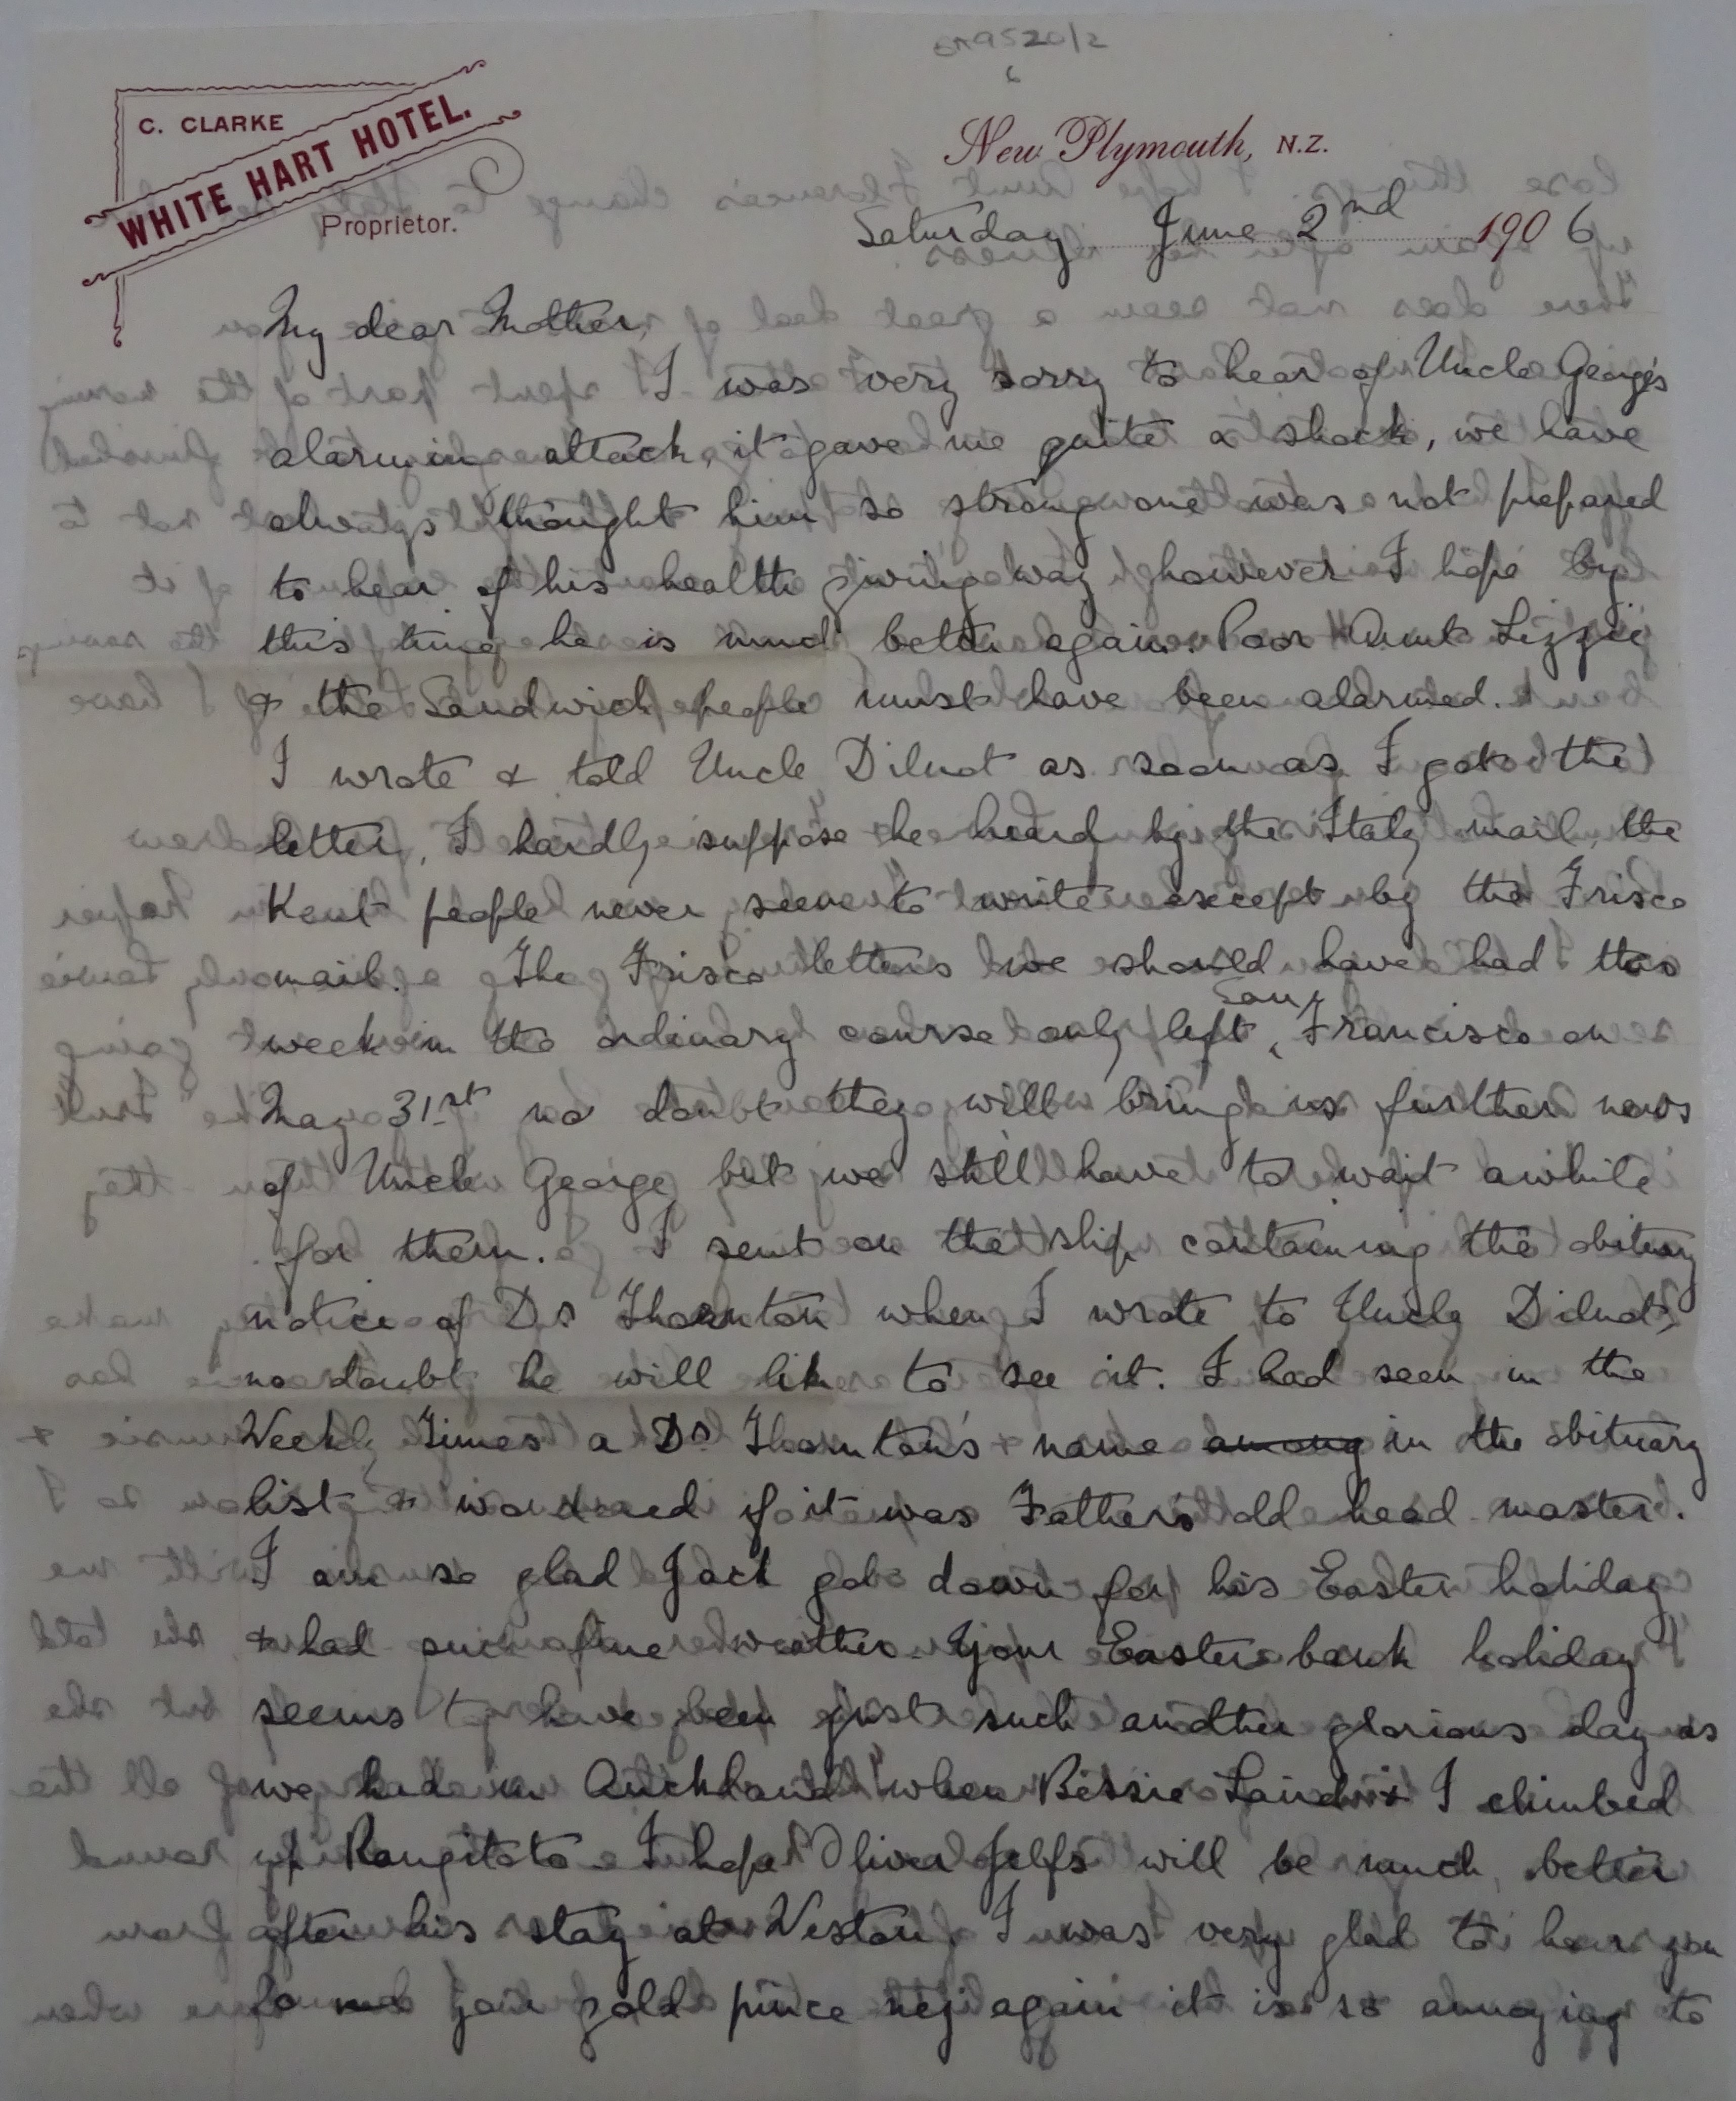 C. CLARKE
WHITE HART HOTEL.
Proprietor.
New Plymouth, N.Z.
Saturday June 2nd 1906
My dear Mother,
I was very sorry to hear of Uncle George's
alarming attack, it gave me quite a shock, we have
always thought him so strong one was not prepared
to hear of his health giving way however I hope by
this time he is much better again. Poor Aunt Lizzie
& the Sandwich people must have been alarmed.
I wrote & told Uncle Dilnot as soon as I got the
letter, I hardly suppose he heard by the Italy mail, the
Kent people never seem to write except by the Frisco
mail. The Frisco letters we should have had this
week in the ordinary course only left San Francisco on
May 31st no doubt they will bring us further news
of Uncle George but we still have to wait awhile
for them. I sent on the slip containing the obituary
notice of Dr Thornton when I wrote to Uncle Dilnot,
no doubt he will like to see it. I had seen in the
Weekly Times a Dr Thornton's name among in the obituary
list & wondered if it was Father's old head master.
I am so glad Jack got down for his Easter holiday
& had such fine weather. Your Easter bank holiday
seems to have been just such another glorious day as
we had in Auckland when Bessie & I climbed
up Rangitoto. I hope Oliver Jelfs will be much better
after his stay at Weston, I was very glad to hear you
found your gold pince nez again it is so annoying to